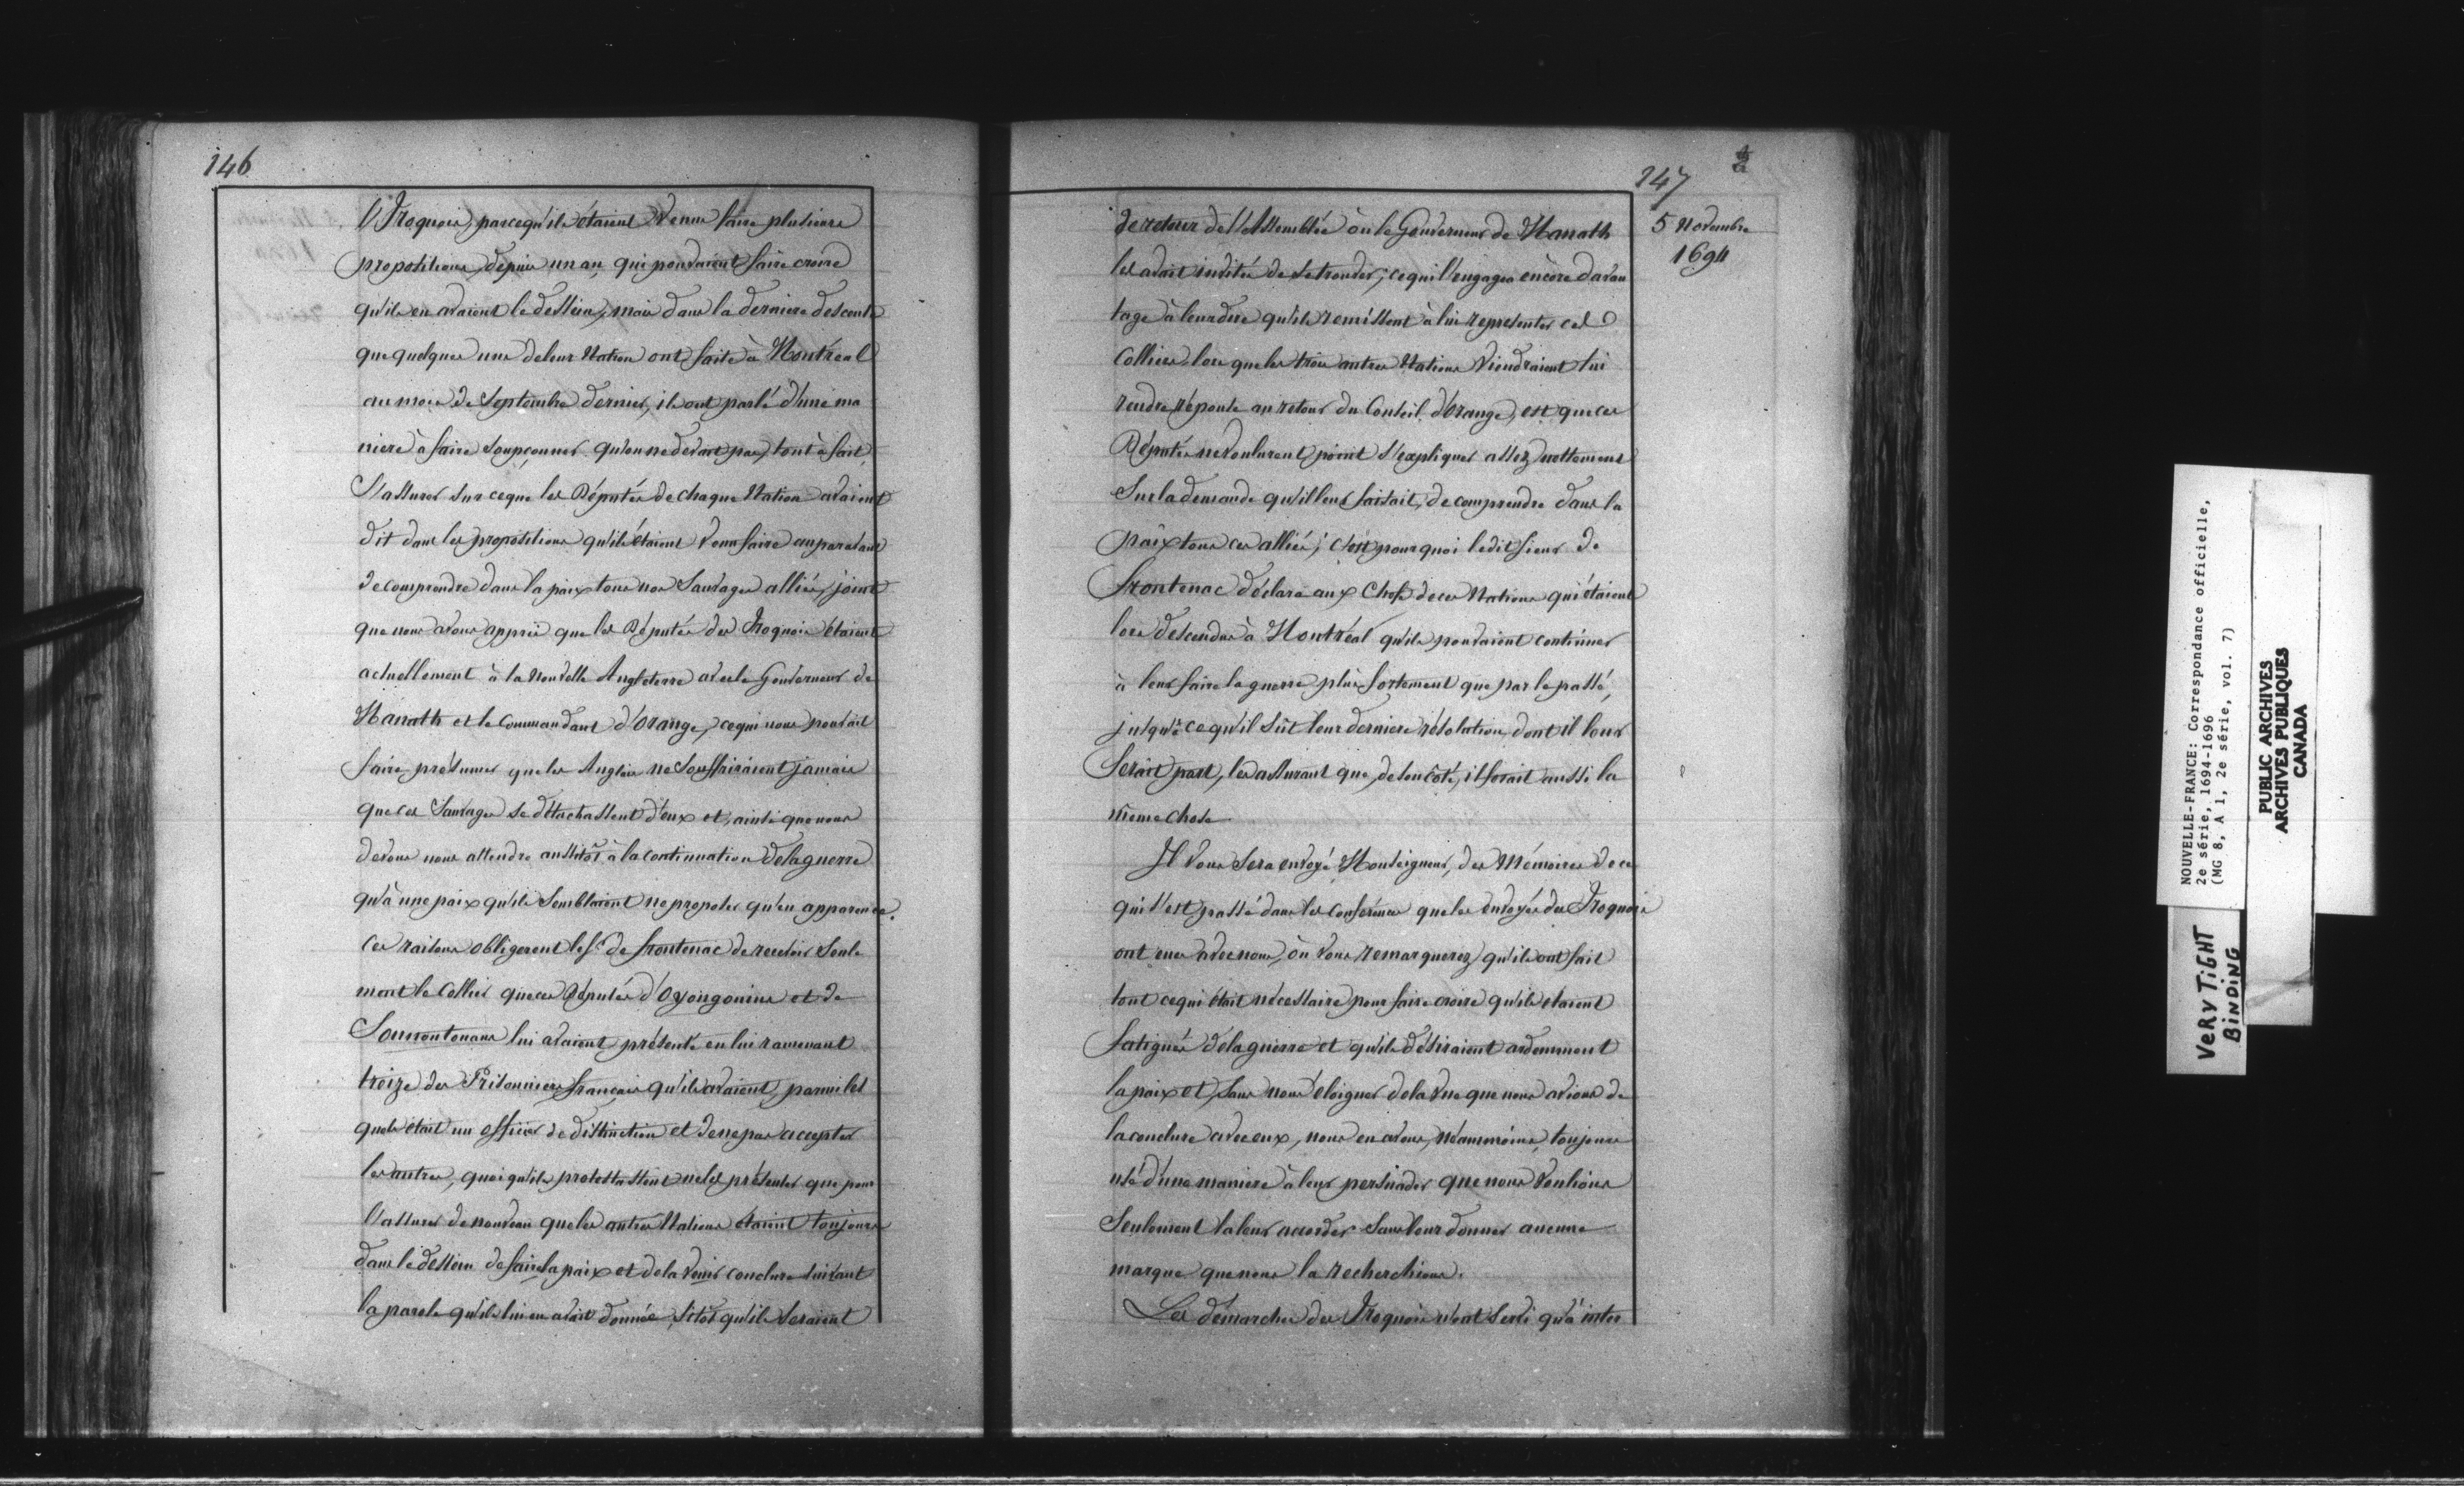 146
l'Iroquois, parcequ'ils étaient Venus faire plusieurs
propositions, depuis un an, qui pouvaient faire croire
qu'ils en avaient le dessein, mais dans la derniere descente
que quelques uns de leur Nation ont faite à Montréal
au mois de Septembre dernier, ils ont parlé d'une ma
niere à faire soupçonner qu'on ne devait pas, tout à fait,
S'assurer sur ceque les Députés de chaque Nation avaient
dit dans les propositions qu'ils étaient Venu faire auparavant
de comprendre dans la paix tous nos Sauvages alliés, joint
que nous avons appris que les Députés des Iroquois étaient
actuellement à la Nouvelle Angleterre avec le Gouverneur de
Manath et le Commandant d'Orange, ce qui nous pouvait
faire présumer que les Anglais ne souffriraient jamais
que ces Sauvages se détachassent d'eux et, ainsi que nous
devons nous attendre aussitôt à la continuation de la guerre
qu'à une paix qu'ils Semblaient ne proposer qu'en apparence.
Ces raisons obligerent le Sr de Frontenac de recevoir Seule
ment le Collier que ces Députés d'Oyongouins et de
Sonnontouans lui avaient présenté en lui ramenant
treize des Prisonniers français qu'ils avaient, parmi les
quels était un officier de distinction et de ne pas accepter
les autres, quoiqu'ils protestassent ne les présenter que pour
l'assurer de nouveau que les autres Nations étaient toujours
dans le dessein de faire la paix et de la Venir conclure suivant
la parole qu'ils lui en avait donnée, sitôt qu'ils seraient
147
2
5 Novembre
1694
de retour de l'Assemblée où le Gouverneur de Manath
les avait invités de se trouver; ce qui l'engagea encore davan
tage à leur dire qu'ils remissent à lui représenter ces
Colliers lors que les trois autres Nations Viendraient lui
rendre réponse au retour du Conseil d'Orange, est que ces
Députés ne voulurent point S'expliquer assez nettement
Sur la demande qu'il leur faisait, de comprendre dans la
paix tous ces alliés; c'est pourquoi ledit Sieur de
Frontenac déclara aux Chefs de ces Nations qui étaient
lors descendus à Montréal qu'ils pouvaient continuer
à leur faire la guerre plus fortement que par le passé,
jusqu'à ce qu'il sût leur derniere résolution, dont il leur
ferait part, les assurant que, de son côté, il ferait aussi la
même chose
Il Vous Sera envoyé Monseigneur, des Mémoires de ce
qui s'est passé dans les conférences que les envoyés des Iroquois
ont eues avec nous, où vous remarquerez qu'ils ont fait
tout ce qui était nécessaire pour faire croire qu'ils étaient
fatigués de la guerre et qu'ils désiraient ardemment
la paix et, sans nous éloigner de la vue que nous avions de
la conclure avec eux, nous en avons, néanmoins, toujours
usé d'une maniere à leur persuader que nous Voulions
Seulement la leur accorder Sans leur donner aucune
marque que nous la recherchions.
Les démarches des Iroquois n'ont servi qu'à inter
NOUVELLE-FRANCE: Correspondance officielle,
2e série, 1694-1696
(MG 8, A 1, 2e série, vol. 7)
PUBLIC ARCHIVES
ARCHIVES PUBLIQUES
CANADA
VERY TIGHT
BINDING